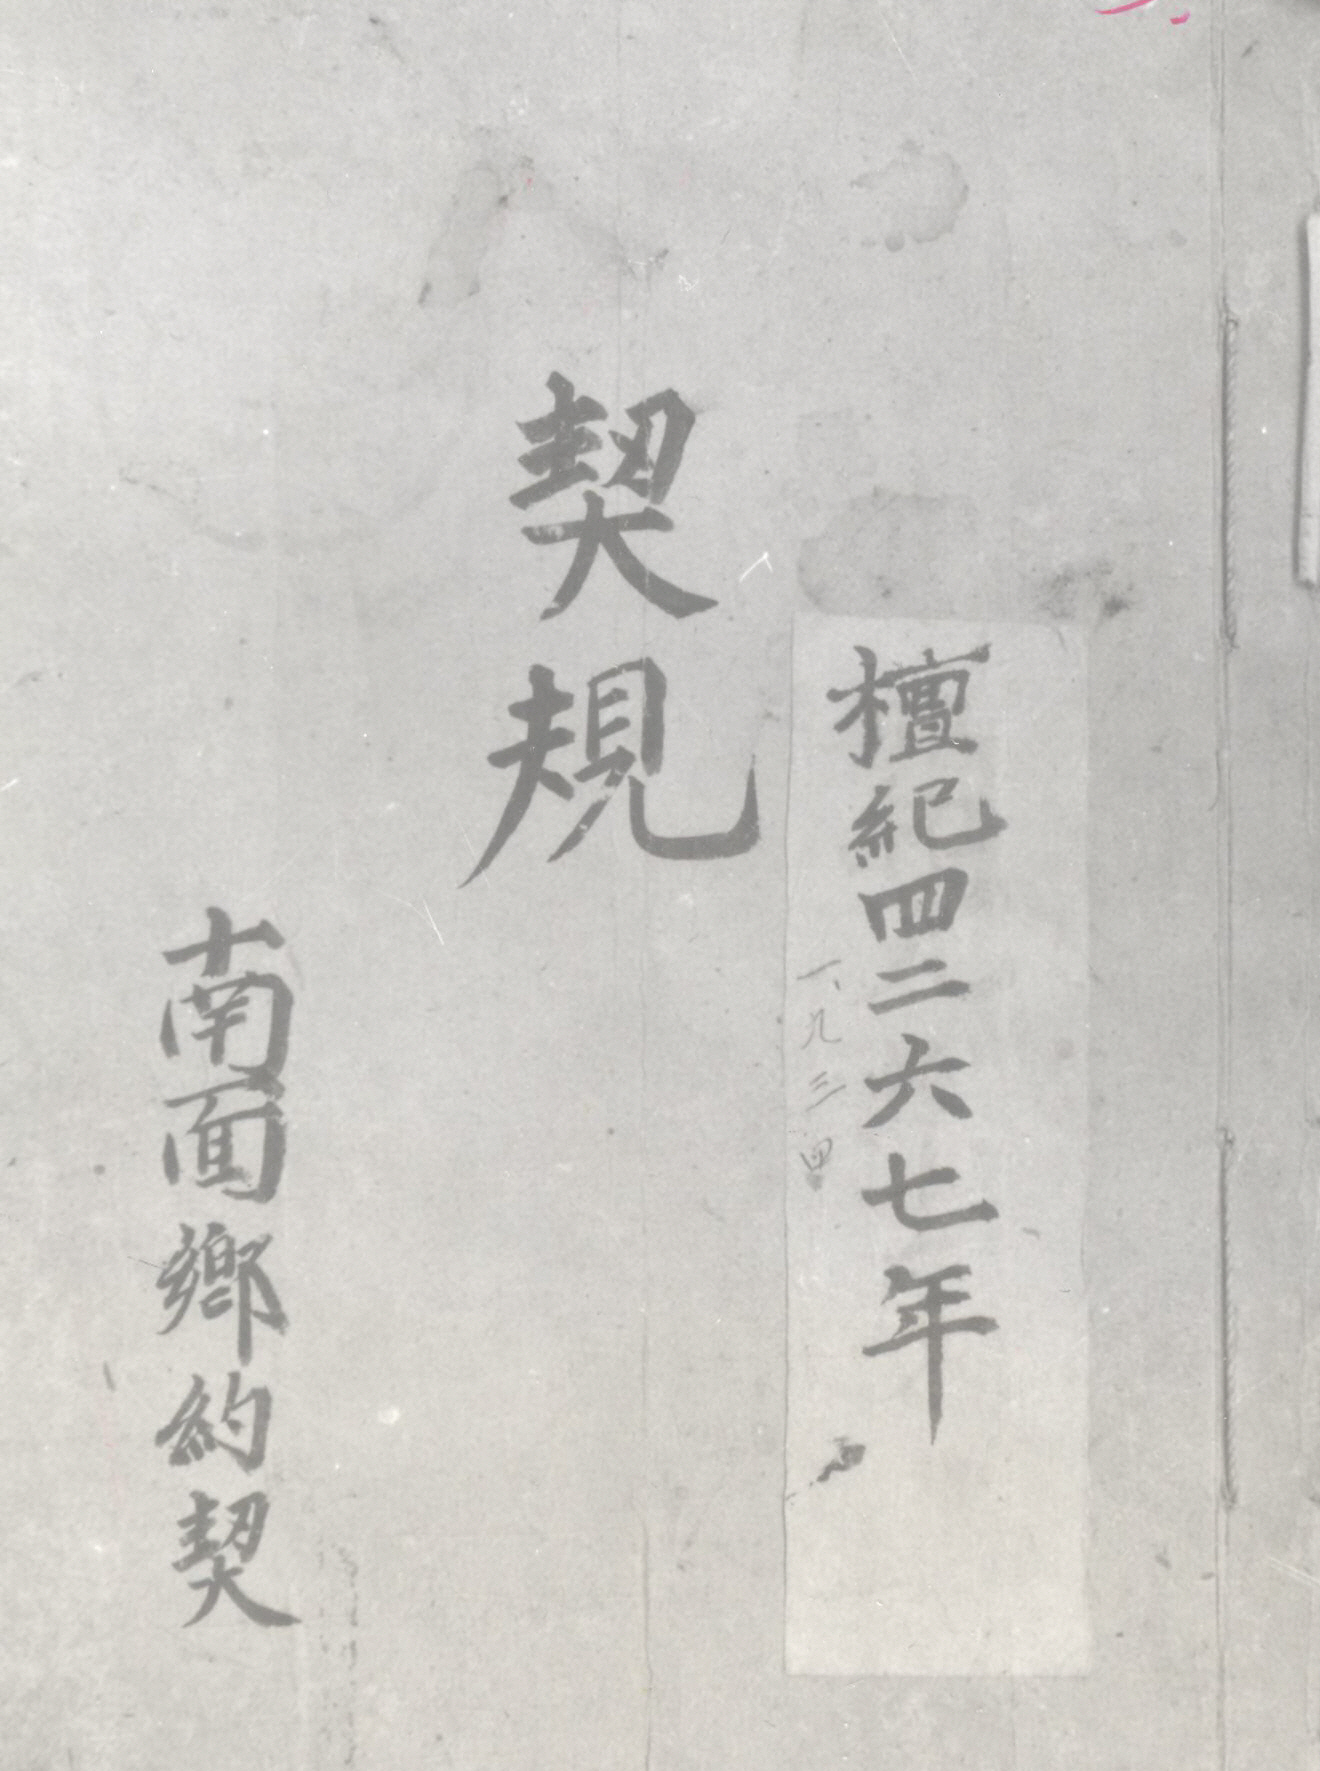 檀紀四二六七年
一九三四
契規
南面鄕約契